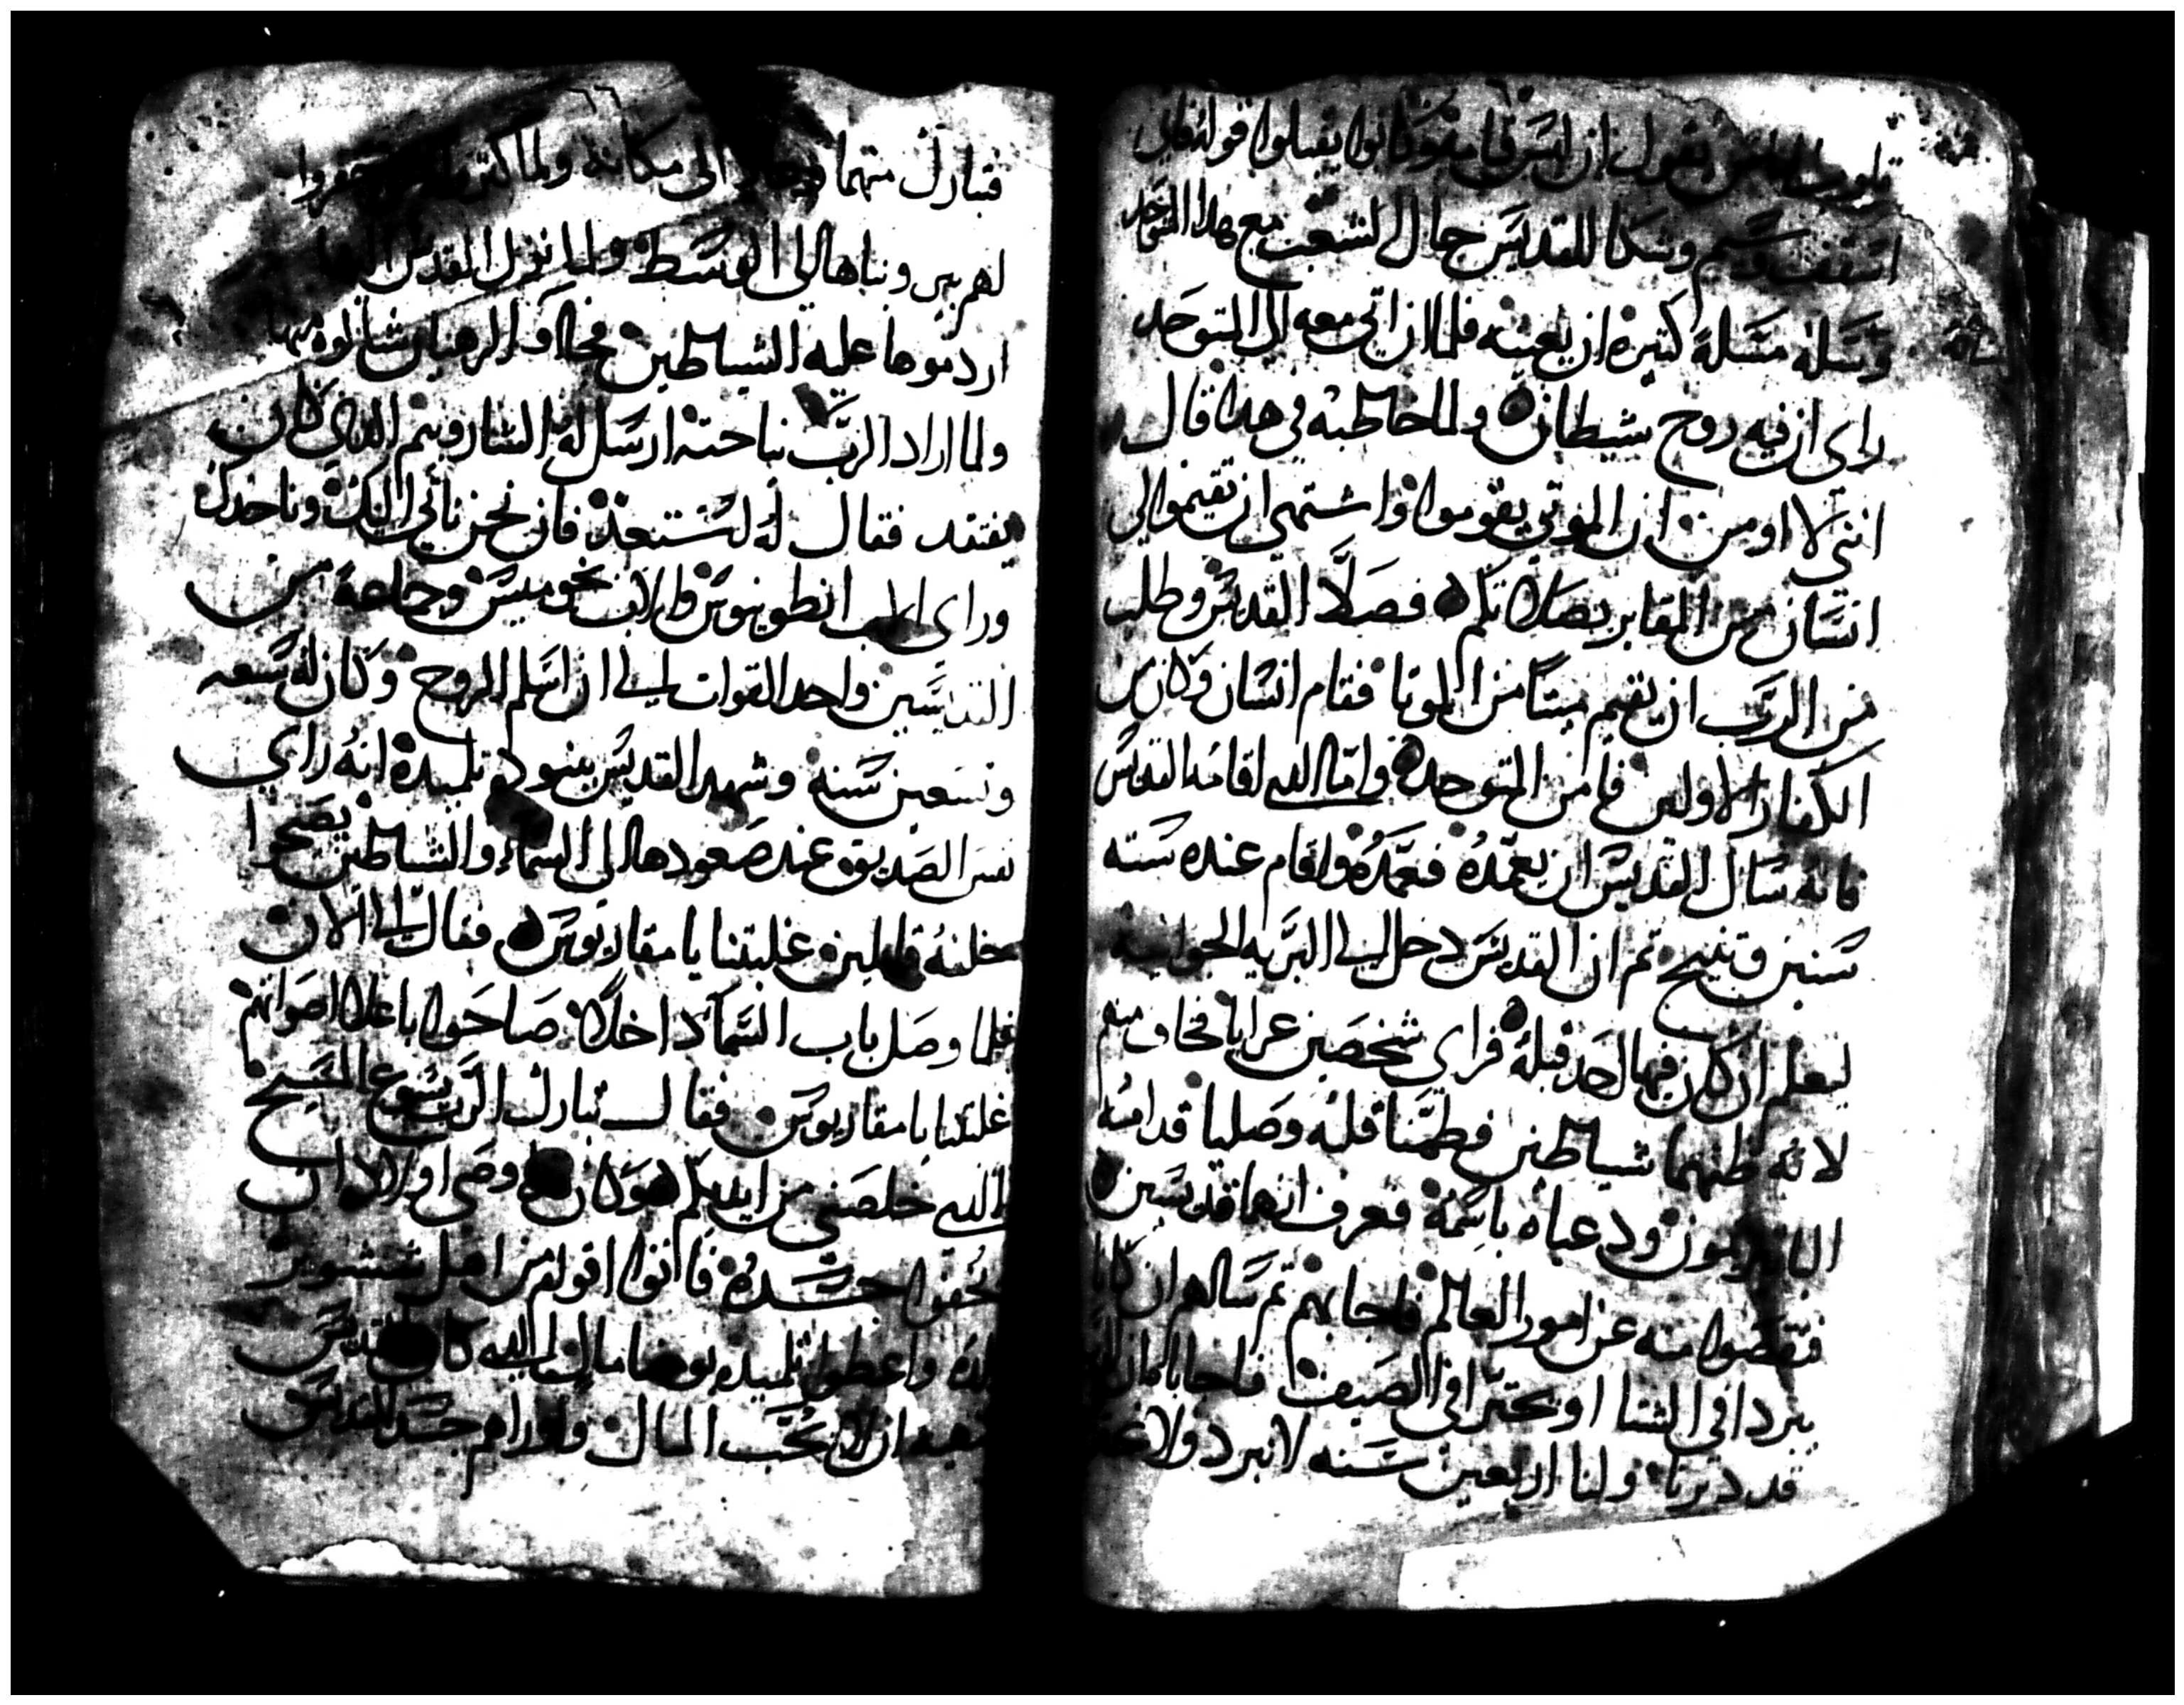 يقول ان ليس قيامه وكانوا يقبلوا قوله فاتي
اسقف وسيم وشكا للقديس حال الشعب مع هذا المتوحد
وسله مسلة كتيرة ان يعينه فلما ان اتي معه الي المتوحد
راي ان فيه روح شيطان ولما خاطبه في هدا قال
انني لا اومن ان الموتي يقوموا واشتهي ان تقيموا لي
انسان من المقابر بصلاتكم فصلا القديس وطلب
من الرب ان يقيم ميتا من الموتا فقام انسان وكان من
الكفار الاولين فامن المتوحد واما الدي اقامه القديس
فانه سال القديس ان يعمده فعمده واقام عنده سته
سنين وتنيح تم ان القديس دخل الي البريه الجوانيه
ليعلم ان كان فيها احد قبله فراي شخصين عرايا فخاف منهم
لانه ظنهما شياطين فطمنا قلبه وصليا قدامه
ودعياه باسمه فعرف انهما قديسين
فتقصوا منه عن امور العالم فاجابهم تم سالهم ان كانا
يبردا في الشتا او يحترا في الصيف فاجابا
قد دبرنا ولنا اربعين سنه لا نبرد ولا
٦٦
فتبارك منهما الي مكانه ولما كتر حفروا
لهم بير وبناها الي الوسط ولما نزل القديس
اردموها عليه الشياطين فجاوا الرهبان شالوه منها
ولما اراد الرب نياحته ارسل له الساروبيم الدي كان
يفتقد فقال له استعد فان نحن ناتي اليك وناخدك
وراي الاب انطونيوس والاب بخوميس وجماعة من
القديسين واحد القوات الي ان اسلم الروح وكان له سبعه
وتسعين سنه وشهد القديس ببنودة تلميده انه راي
نفس الصديق عند صعودها الي السماء والشياطين يصيحوا
خلفه قايلين غلبتنا يا مقاريوس فقال الي الان
فلما وصل باب السما داخلا صاحوا باعلا اصواتهم
غلبتنا يا مقاريوس فقال تبارك الرب يسوع المسيح
الدي خلصني من ايديكم ووصي اولاده ان
يخفوا جسده فاتوا اقوام من اهل شبشوير
بلده واعطوا تلميده يوحنا مال الدي كان القديس
ينهيه ان لا يحب المال واوراهم جسد القديس